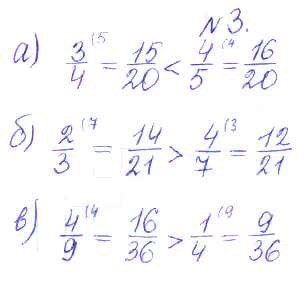 № 3.
а) 3/4 (5 = 15/20 < 4/5 (4 = 16/20
б) 2/3 (7 = 14/21 > 4/7 (3 = 12/21
в) 4/9 (4 = 16/36 > 1/4 (9 = 9/36